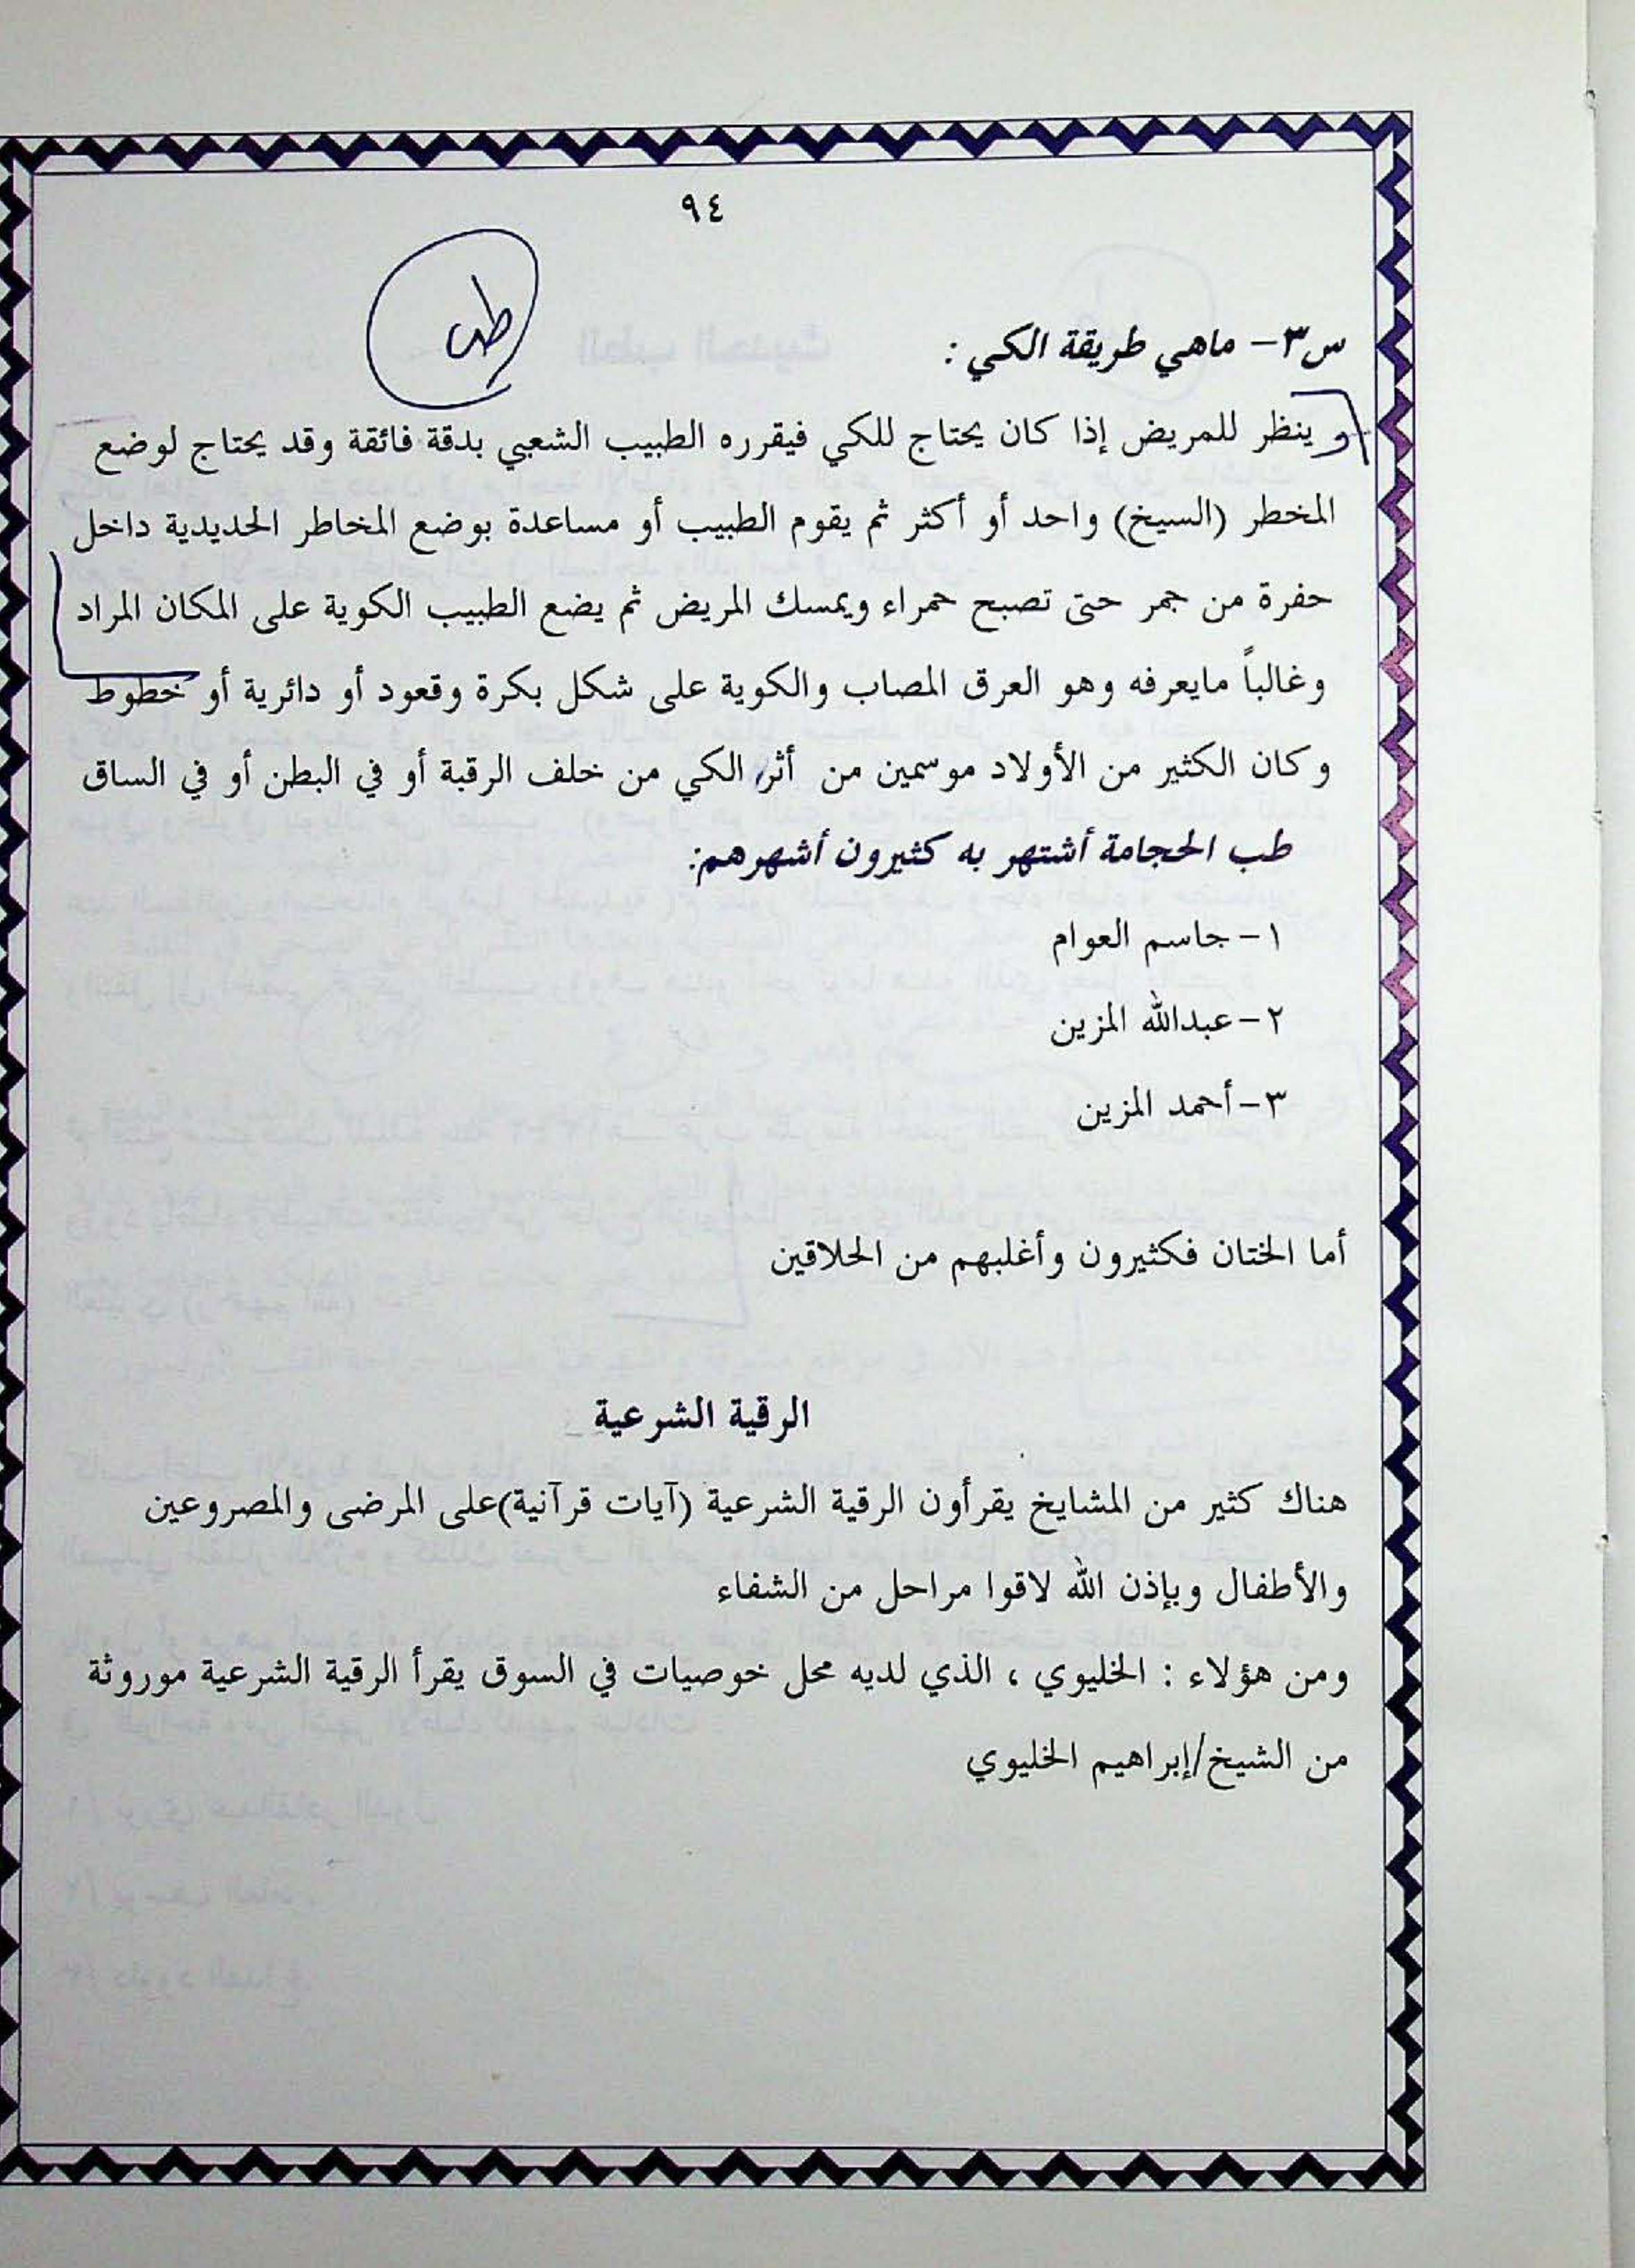 ٩٤
طب
س٣- ماهي طريقة الكي :
وينظر للمريض إذا كان يحتاج للكي فيقرره الطبيب الشعبي بدقة فائقة وقد يحتاج لوضع
المخطر (السيخ) واحد أو أكثر ثم يقوم الطبيب أو مساعدة بوضع المخاطر الحديدية داخل
حفرة من جمر حتى تصبح حمراء ويمسك المريض ثم يضع الطبيب الكوية على المكان المراد
وغالباً مايعرفه وهو العرق المصاب والكوية على شكل بكرة وقعود أو دائرية أو خطوط
وكان الكثير من الأولاد موسمين من أثر الكي من خلف الرقبة أو في البطن أو في الساق
طب الحجامة أشتهر به كثيرون أشهرهم:
١- جاسم العوام
٢- عبدالله المزين
٣-أحمد المزين
أما الختان فكثيرون وأغلبهم من الحلاقين
الرقية الشرعية
هناك كثير من المشايخ يقرأون الرقية الشرعية (آيات قرآنية)على المرضى والمصروعين
والأطفال وبإذن الله لاقوا مراحل من الشفاء
ومن هؤلاء : الخليوي ، الذي لديه محل خوصيات في السوق يقرأ الرقية الشرعية موروثة
من الشيخ/إبراهيم الخليوي